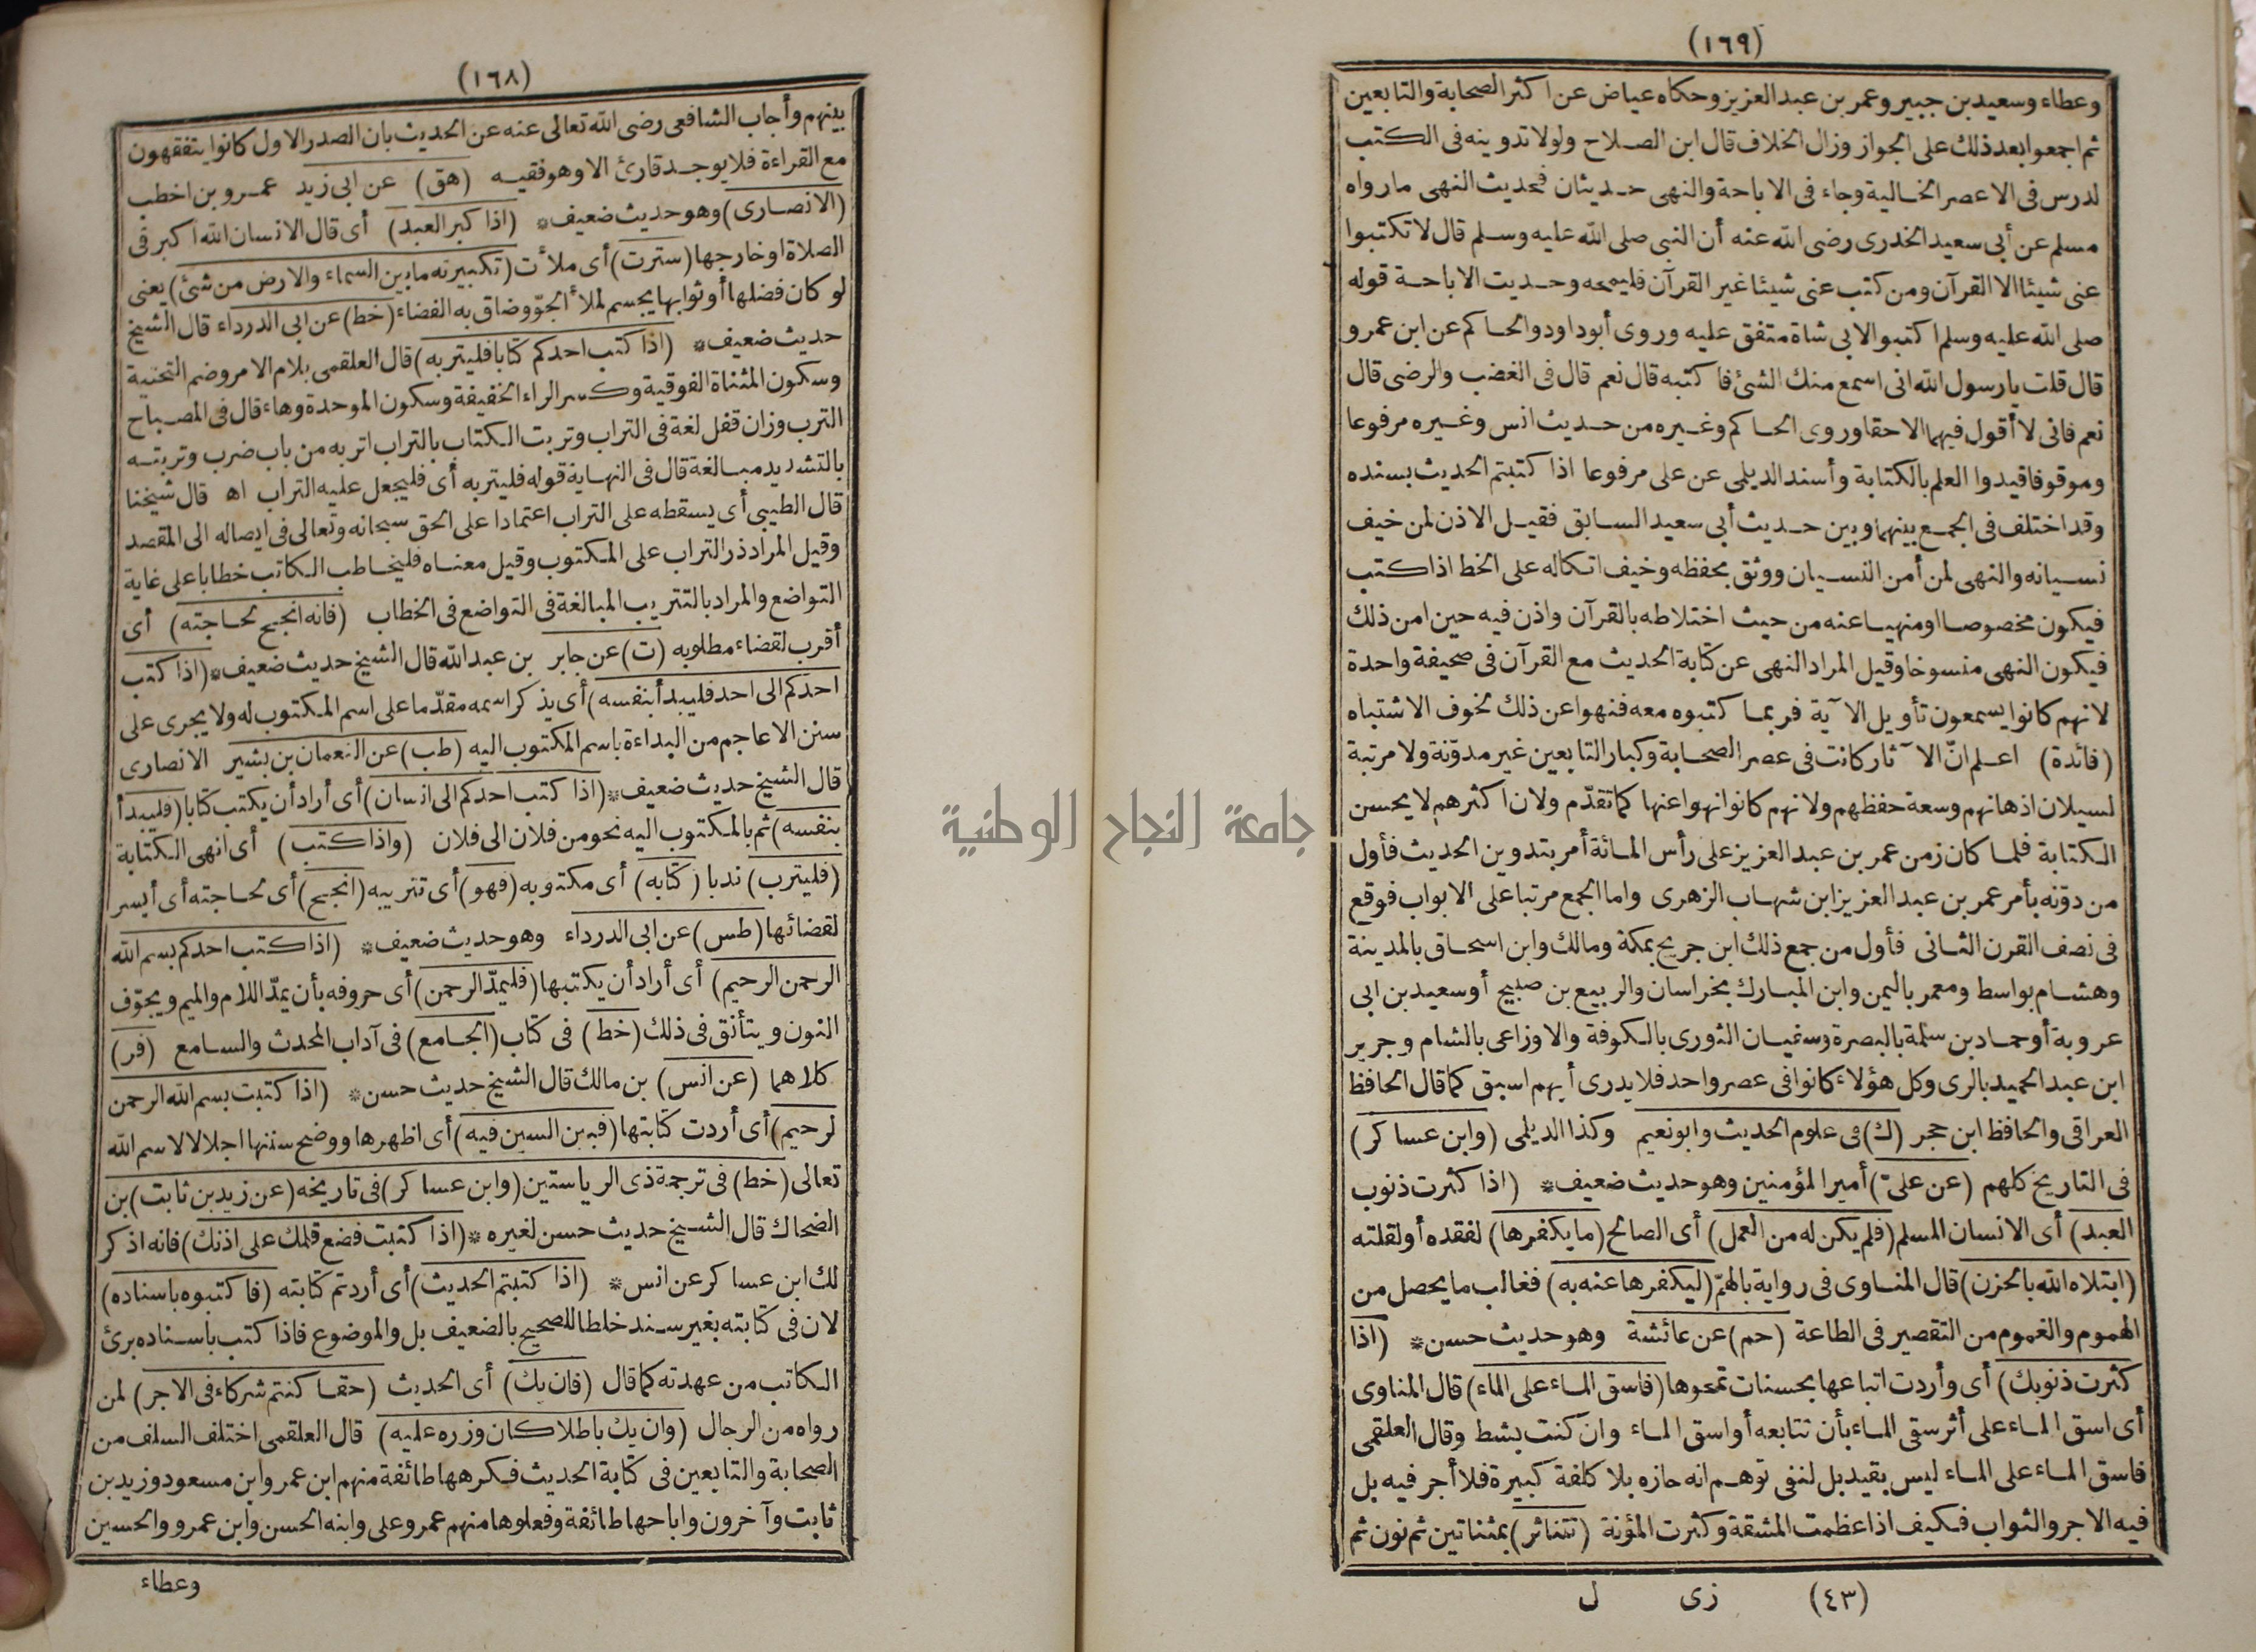 (١٦٨)
بينهم وأجاب الشافعى رضى الله تعالى عنه عن الحديث بان الصدر الاول كانوا يتفقهون
مع القراءة فلا يوجد قارئ الا وهو فقيه (هق) عن ابى زيد عمرو بن اخطب
(الانصارى) وهو حديث ضعيف* (اذا كبر العبد) أى قال الانسان الله اكبر فى
الصلاة او خارجها (سترت) أى ملأت (تكبيرته ما بين السماء والارض من شئ) يعنى
لو كان فضلها أو ثوابها يجسم لملأ الجوّ وضاق به الفضاء (خط) عن ابى الدرداء قال الشيخ
حديث ضعيف* (اذا كتب احدكم كتابا فليتربه) قال العلقمى بلام الامر وضم التحتية
وسكون المثناة الفوقية وكسر الراء الخفيفة وسكون الموحدة وهاء قال فى المصباح
الترب وزان قفل لغة فى التراب وتربت الكتاب بالتراب اتربه من باب ضرب وتربته
بالتشديد مبالغة قال فى النهاية قوله فليتربه أى فليجعل عليه التراب اه قال شيخنا
قال الطيبى أى يسقطه على التراب اعتمادا على الحق سبحانه وتعالى فى ايصاله الى المقصد
وقيل المراد ذر التراب على المكتوب وقيل معناه فليخاطب الكاتب خطابا على غاية
التواضع والمراد بالتتريب المبالغة فى التواضع فى الخطاب (فانه انجح لحاجته) أى
أقرب لقضاء مطلوبه (ت) عن جابر بن عبد الله قال الشيخ حديث ضعيف* (اذا كتب
احدكم الى احد فليبدأ بنفسه) أى يذكر اسمه مقدّما على اسم المكتوب له ولا يجرى على
سنن الاعاجم من البداءة باسم المكتوب اليه (طب) عن النعمان بن بشير الانصارى
قال الشيخ حديث ضعيف* (اذا كتب احدكم الى انسان) أى أراد أن يكتب كتابا (فليبدأ
بنفسه) ثم بالمكتوب اليه نحو من فلان الى فلان (واذا كتب) أى انهى الكتابة
(فليترب) ندبا (كتابه) أى مكتوبه (فهو) أى تتريبه (انجح) أى لحاجته أى أيسر
لقضائها (طس) عن ابى الدرداء وهو حديث ضعيف* (اذا كتب احدكم بسم الله
الرحمن الرحيم) أى أراد أن يكتبها (فليمدّ الرحمن) أى حروفه بأن يمدّ اللام والميم ويجوّف
النون ويتأنق فى ذلك (خط) فى كتاب (الجامع) فى آداب المحدث والسامع (فر)
كلاهما (عن انس) بن مالك قال الشيخ حديث حسن* (اذا كتبت بسم الله الرحمن
لرحيم) أى أردت كتابتها (فبين السين فيه) أى اظهرها ووضح سننها اجلالا لاسم الله
تعالى (خط) فى ترجمة ذى الرياستين (وابن عساكر) فى تاريخه (عن زيد بن ثابت) بن
الضحاك قال الشيخ حديث حسن لغيره* (اذا كتبت فضع قلمك على اذنك) فانه اذكر
لك ابن عساكر عن انس* (اذا كتبتم الحديث) أى أردتم كتابته (فاكتبوه باسناده)
لان فى كتابته بغير سند خلطا للصحيح بالضعيف بل والموضوع فاذا كتب باسناده برئ
الكاتب من عهدته كما قال (فان يك) أى الحديث (حقا كنتم شركاء فى الاجر) لمن
رواه من الرجال (وان يك باطلا كان وزره عليه) قال العلقمى اختلف السلف من
الصحابة والتابعين فى كتابة الحديث فكرهها طائفة منهم ابن عمر وابن مسعود وزيد بن
ثابت وآخرون واباحها طائفة وفعلوها منهم عمر وعلى وابنه الحسن وابن عمرو والحسين
وعطاء
(١٦٩)
وعطاء وسعيد بن جبير وعمر بن عبد العزيز وحكاه عياض عن اكثر الصحابة والتابعين
ثم اجمعوا بعد ذلك على الجواز وزال الخلاف قال ابن الصلاح ولولا تدوينه فى الكتب
لدرس فى الاعصر الخالية وجاء فى الاباحة والنهى حديثان فحديث النهى ما رواه
مسلم عن أبى سعيد الخدرى رضى الله عنه أن النبى صلى الله عليه وسلم قال لا تكتبوا
عنى شيئا الا القرآن ومن كتب عنى شيئا غير القرآن فليمحه وحديث الاباحة قوله
صلى الله عليه وسلم اكتبوا لابى شاة متفق عليه وروى أبوداود والحاكم عن ابن عمرو
قال قلت يا رسول الله انى اسمع منك الشئ فاكتبه قال نعم قال فى الغضب والرضى قال
نعم فانى لا أقول فيهما الا حقا وروى الحاكم وغيره من حديث انس وغيره مرفوعا
وموقوفا قيدوا العلم بالكتابة وأسند الديلمى عن على مرفوعا اذا كتبتم الحديث بسنده
وقد اختلف فى الجمع بينهما وبين حديث أبى سعيد السابق فقيل الاذن لمن خيف
نسيانه والنهى لمن أمن النسيان ووثق بحفظه وخيف اتكاله على الخط اذا كتب
فيكون مخصوصا او منهيا عنه من حيث اختلاطه بالقرآن واذن فيه حين امن ذلك
فيكون النهى منسوخا وقيل المراد النهى عن كتابة الحديث مع القرآن فى صحيفة واحدة
لانهم كانوا يسمعون تأويل الآية فربما كتبوه معه فنهوا عن ذلك لخوف الاشتباه
(فائدة) اعلم انّ الآثار كانت فى عصر الصحابة وكبار التابعين غير مدوّنة ولا مرتبة
لسيلان اذهانهم وسعة حفظهم ولانهم كانوا نهوا عنها كما تقدّم ولان اكثرهم لا يحسن
الكتابة فلما كان زمن عمر بن عبد العزيز على رأس المائة أمر بتدوين الحديث فأول
من دوّنه بأمر عمر بن عبد العزيز ابن شهاب الزهرى واما الجمع مرتبا على الابواب فوقع
فى نصف القرن الثانى فأول من جمع ذلك ابن جريج بمكة ومالك وابن اسحاق بالمدينة
وهشام بواسط ومعمر باليمن وابن المبارك بخراسان والربيع بن صبيح أو سعيد بن ابى
عروبة أو حماد بن سلمة بالبصرة وسفيان الثورى بالكوفة والاوزاعى بالشام وجرير
ابن عبد الحميد بالرى وكل هؤلاء كانوا فى عصر واحد فلا يدرى أيهم اسبق كما قال الحافظ
العراقى والحافظ ابن حجر (ك) فى علوم الحديث وابو نعيم وكذا الديلمى (وابن عساكر)
فى التاريخ كلهم (عن علىّ) أمير المؤمنين وهو حديث ضعيف* (اذا كثرت ذنوب
العبد) أى الانسان المسلم (فلم يكن له من العمل) أى الصالح (ما يكفرها) لفقده أو لقلته
(ابتلاه الله بالحزن) قال المناوى فى رواية بالهمّ (ليكفرها عنه به) فغالب ما يحصل من
الهموم والغموم من التقصير فى الطاعة (حم) عن عائشة وهو حديث حسن* (اذا
كثرت ذنوبك) أى وأردت اتباعها بحسنات تمحوها (فاسق الماء على الماء) قال المناوى
أى اسق الماء على أثر سقى الماء بأن تتابعه أو اسق الماء وان كنت بشط وقال العلقمى
فاسق الماء على الماء ليس بقيد بل لنفى توهم انه حازه بلا كلفة كبيرة فلا أجر فيه بل
فيه الاجر والثواب فكيف اذا عظمت المشقة وكثرت المؤنة (تتناثر) بمثناتين ثم نون ثم
(٤٣) زى ل
جامعة النجاح الوطنية